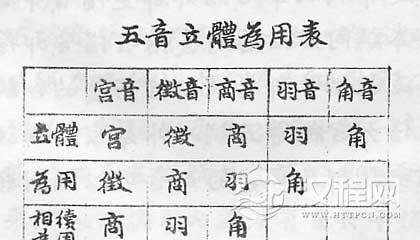 五音立體為用表
宮音 徵音 商音 羽音 角音
立體 宮 徵 商 羽 角
為用 徵 商 羽 角
相續 商 羽 角
汉程网
WWW.HTTPCN.COM